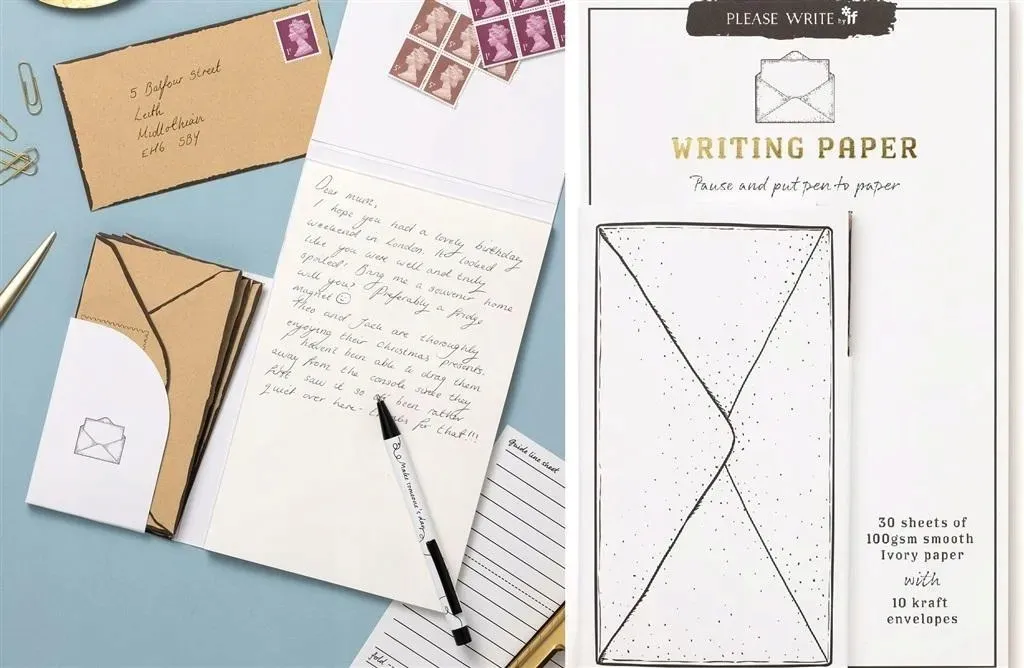 5 Balfour Street
Leith
Midlothian
EH6 5BY
Dear mum,
I hope you had a lovely birthday
weekend in London. It looked
like you were well and truly
spoiled! Bring me a souvenir home
will you? Preferably a fridge
magnet
Theo and Jack are thoroughly
enjoying their Christmas presents.
haven't been able to drag them
away from the console since they
first saw it so its been rather
quiet over here- for that!!!
Make someone's day
guide line sheet
fold
PLEASE WRITE by if
WRITING PAPER
Pause and put pen to paper
30 sheets of
100gsm smooth
Ivory paper
with
10 kraft
envelopes